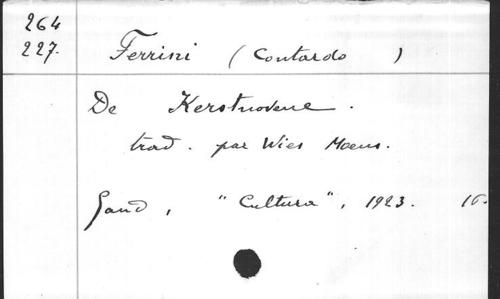 264
227. Ferrini (Contardo )
De Kerstnovene.
trad. par Wies Moens.
Gand, "Cultura", 1923. 16.